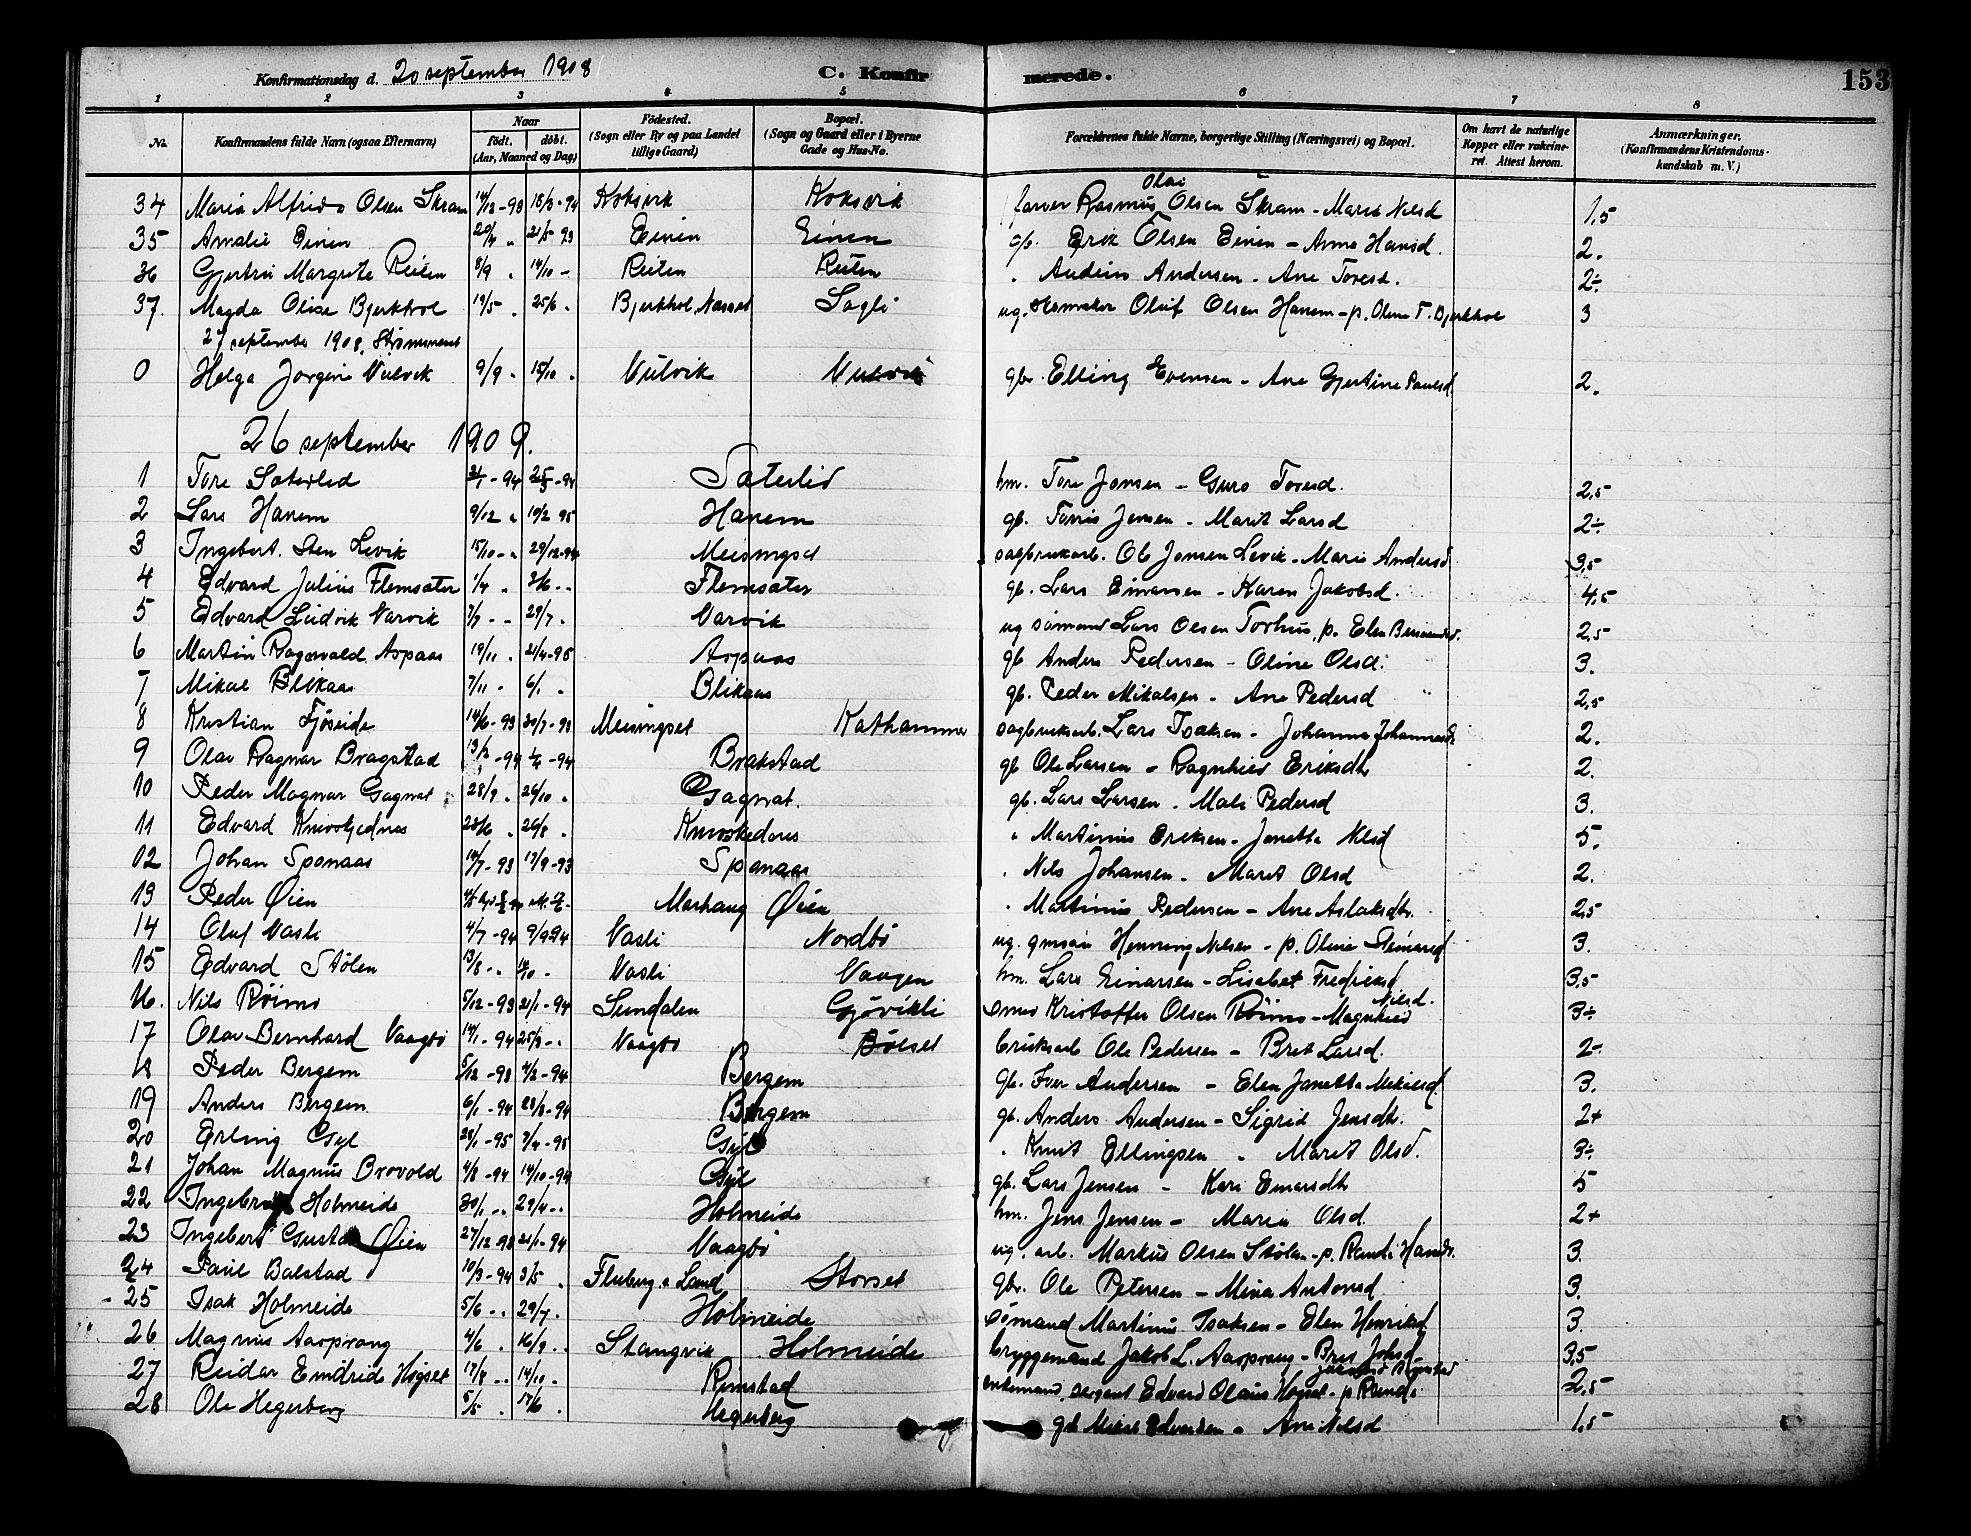 Konfirmationsdag d. 20 september 1908 C. Konfirmerede. 153
1 2 3 4 5 6 7 8
No. Konfirmandens fulde Navn (ogsaa Efternavn) Naar født. døbt. (Aar, Maaned og Dag) Fødested. (Sogn eller By og paa Landet tillige Gaard) Bopæl. (Sogn og Gaard eller i Byerne Gade og Hus-No. Forældrenes fulde Navne, borgerlige Stilling (Næringsvei) og Bopæl. Om havt de naturlige Kopper eller vaccineret. Attest herom. Anmærkninger. (Konfirmandens Kristendomskundskab m. V.)
34 Maria Alfrida Olsen Skram 14/12-93 18/3-94 Koksvik Koksvik farver Rasmus Olai Olsen Skram - Marit Nilsd 1,5
35 Amalie Einen 20/4 " 21/5 93 Einen Einen gb. Erik Olsen Einen - Anne Hansd. 2.
36 Gjertrú Margrete Reiten 8/9 " 14/10 - Reiten Reiten " Audun Andersen - Ane Toresd. 2÷
37. Magda Olise Bjerkhol 19/5 " 25/6 " Bjerkhol, Sagli ug. Oluf Olsen Hanem - p. Oline T. Bjerkhol 3
27 september 1908, Strømmen
0 Helga Jorgine Vulvik 9/9 " 15/10 " Vulvik Vulvik gbr. Elling Evensen - Ane Gjertine Paulsd 2.
26 september 1909.
1 Tore Saterlid 21/1 - 94 25/3 - 94 Saterlid hm. Tore Jonsen - Guro Toresd. 2,5
2 Lars Hanem 9/12 " 10/2 95 Hanem gb. Tørris Jensen - Marit Larsd 2÷
3 Ingebrt. Sten Levik 15/10 - " 29/12-94 Meisingset sagbruksarb. Ole Jonsen Levik - Mari Andersd 3,5
4 Edvard Julius Flemsater 1/4 " 3/6 - - Flemsater gb. Lars Einarsen - Karen Jakobsd. 4,5
5 Edvard Ludvik Varvik 7/7 - - 29/7 " Varvik ug sømand Lars Olsen Torhus, p. Elen 2,5
6 Martin Ragnvald Aspaas 19/11 " 21/4-95 Aspaas gb Anders Pedersen - Oline Olsd. 3.
7 Mikal Blikaas 7/11 - 6/1 " Blikaas gb. Peder Mikalsen - Ane Pedersd 2,5
8 Kristian Fjøseide 14/6-93 30/7-93 Meisingset Kathammer sagbruksarb. Lars Isaksen - Johanna Johannesd. 2.
9 Olav Ragnar Bragstad 13/2 - 94 - 94 Brakstad gb Ole Larsen - Ragnhild Eriksdtr 2.
10 Peder Magnar Gagnat 28/9 " 26/10 " Gagnat. gb. Lars Larsen - Mali Pedersd 3.
11 Edvard Knivskjednes 28/6 " 26/8 " Knivskednes " Martinus Eriksen - Janetta Nilsd 5.
02 Johan Spanaas 14/7-93 17/9-93 Spanaas " Nils Johansen - Marit Olsd 2.
13 Peder Øien Marhaug Øien " Martinus Pedersen - Ane Aslaksdtr. 2,5
14 Oluf Vasli 4/7 - 94 9/9 94 Vasli Nordbø ug. Henning Nilsen - p. Oline 3.
15 Edvard Stølen 13/8 - . 14/10 - Vasli Vaagen hm. Lars Einarsen - Lisabet Fredriksd 3,5
16. Nils Røimo 5/12 - 93 21/1 - 94 Sundalen Gjøvikli Kristoffer Olsen Røimo - Magnhild Nilsd. 3÷
17 Olav Bernhard Vaagbø 14/1 - 94 25/3 - . Vaagbø Bølset bruksarb Ole Pedersen - Brit Larsd. 2÷
18 Peder Bergem 5/12-93 4/2-94 Bergem gb. Iver Andersen - Elen Janetta Mikalsd. 3.
19 Anders Bergem 6/1 - 94 28/3-94 Bergem gb. Anders Andersen - Sigrid Jensdtr. 2+
20 Erling Gyl 29/1-95 7/4-95 Gyl " Knut Ellingsen " Marit Olsd. 3÷
21 Johan Magnus Brovold 4/8-94 14/10-94 Gyl gb. Lars Jensen - Kari Einarsdtr 5
22 Holmeide 30/1 - " 29/4 - . Holmeide hm. Jens Jensen - Maria Olsd. 2+
23 Ingebert Gustav Øien 27/12-93 21/1-94 Vaagbø ug. arb. Markus Olsen Stølen - p. Randi Hansd. 3.
24 Paul Balstad 10/3-94 3/5 " Fluberg, Land Storset gbr. Ole Petersen - Mina Antonsd. 3.
25 Isak Holmeide 5/6 - . 29/7 . Holmeide sømand Martinus Isaksen - Elen Henriksd 3.
26 Magnus Aasprang 4/6 . 16/9 . Stangvik Holmeide bryggemand Jakob L. Aasprang - Brit Johsd 3,5
27 Reidar Eindride Høgset 17/8 . 14/10 . Rimstad enkemand, sergeant Edvard Olaus Høgset - p Randi Rimstad 2,5
28 Ole Hegerberg 5/5 . 17/6 . Hegerberg gb Mikal Edvardsen - Ane Nilsd 1,5